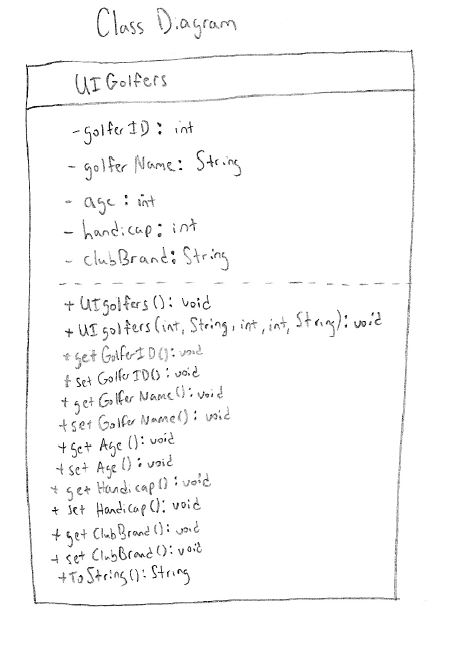 Class Diagram
UIGolfers
- golferID: int
- golferName: String
- age: int
- handicap: int
- clubBrand: String
+ UIgolfers(): void
+ UIgolfers(int, String, int, int, String): void
+ getGolferID(): void
+ setGolferID(): void
+ getGolferName(): void
+ setGolferName(): void
+ getAge(): void
+ setAge(): void
+ getHandicap(): void
+ setHandicap(): void
+ getClubBrand(): void
+ setClubBrand(): void
+ToString(): String